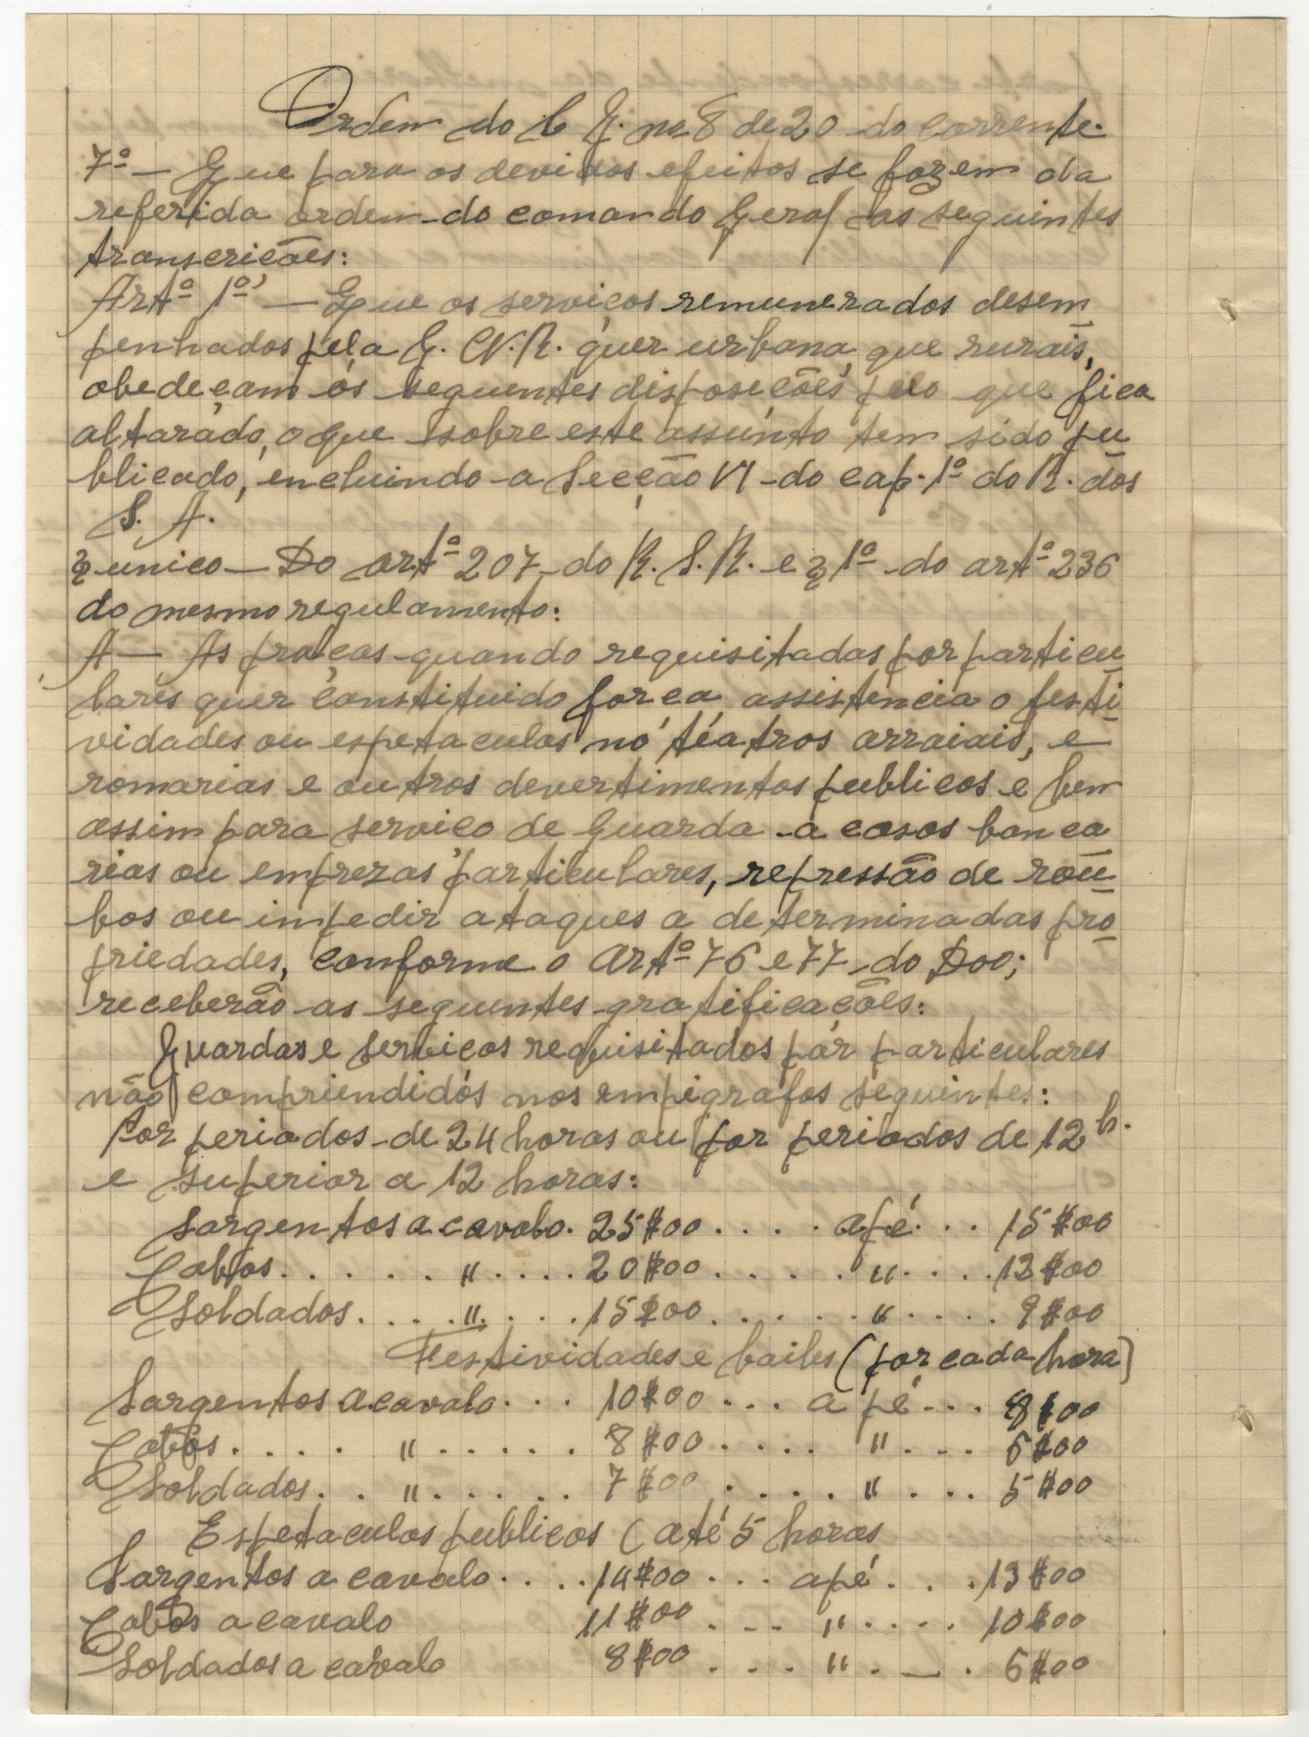 Ordem do C. G. nº 8 de 20 do corrente.
7º — Que para os devidos efeitos se fazem da
referida ordem do comando Geral as seguintes
transericões:
Artº 1º — Que os serviços remunerados desem
penhados pela G. N. R. quer urbana, que rurais,
obedeçam ós seguentes disposeções pelo que fica
altarado, o que sobre este assunto tem sido pu
blicado, encluindo a Secção VI do cap. 1º do R. dos
S. A.
§ unico — Do artº 207 do R. S. R. e § 1º do artº 236
do mesmo regulamento:
A — As praças quando requisitadas por particu
lares quer constituido forca assistencia o festi
vidades ou espetaculos nó téatros arraiais, e
romarias e outros devertimentos publicos e bem
assim para serviço de Guarda a casas banca
rias ou emprezas particulares, repressão de rou
bos ou impedir ataques a determinadas pro
priedades, conforme o Artº 76 e 77 do Doo;
receberão as seguentes gratificações:
Guardas e serviços requisitados por particulares
não compriendidos nos empigrafos seguintes:
Por periados de 24 horas ou por periodos de 12 h.
e superior a 12 horas:
Sargentos a cavalo. 25$00 . . . . a pé . . . 15$00
Cabos . . . . . . " . . . . 20$00 . . . . . " . . . . 13$00
Soldados . . . . " . . . . 15$00 . . . . . " . . . . . 9$00
Festividades e bailes (por cada hora)
Sargentos a cavalo . . . 10$00 . . . a pé . . . 8$00
Cabos . . . . . " . . . . . . 8$00 . . . . " . . . 6$00
Soldados . . . " . . . . . . 7$00 . . . . . " . . . 5$00
Espetaculos publicos (até 5 horas
Sargentos a cavalo . . . . 14$00 . . . a pé . . . 13$00
Cabos a cavalo 11$00 . . . " . . . . 10$00
Soldados a cavalo 8$00 . . . . " . . . 6$00